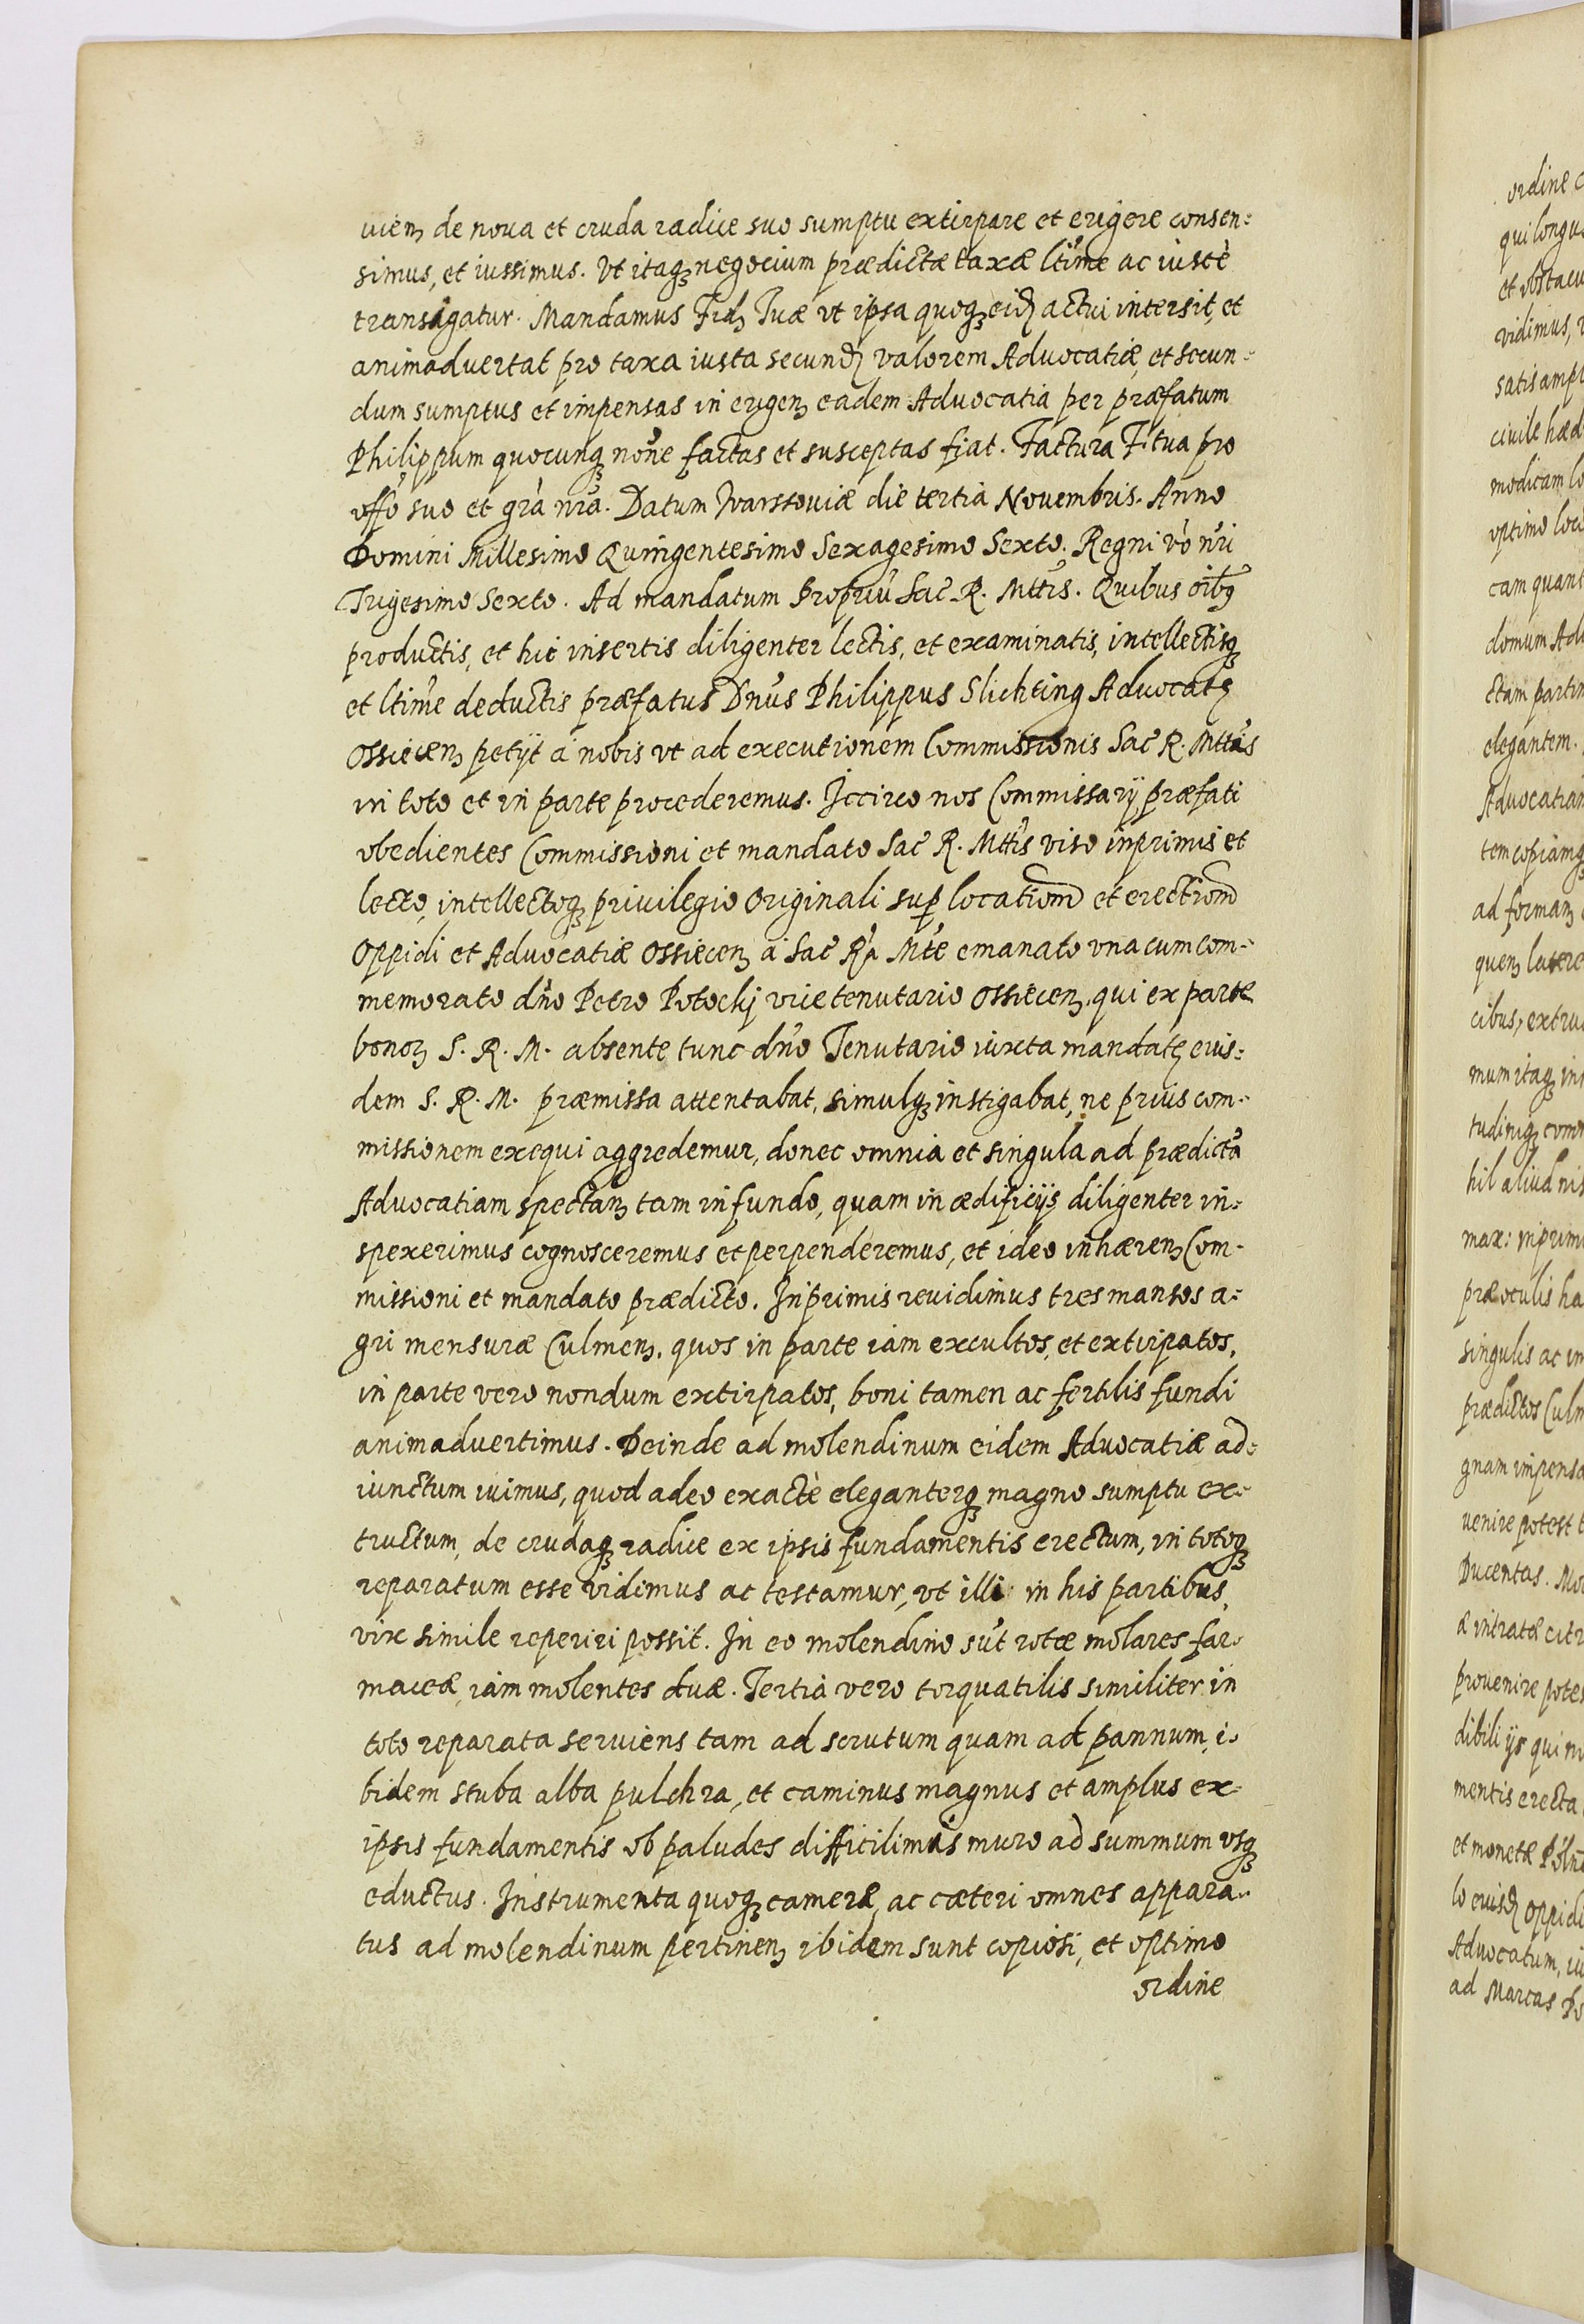 uien de noua et cruda radice suo sumptu extirpare et erigere consen:
simus, et iussimus. Vt itaqꝫ negocium prædictæ taxæ ltime ac iustè
transagatur. Mandamus Fidꝫ Tuæ vt ipsa quoqꝫ eidꝫ actui intersit, et
animaduertat pro taxa iusta secundꝫ valorem Aduocatiæ, et secun:
dum sumptus et impensas in erigenꝫ eadem Aduocatia per præfatum
Philippum quocunqꝫ noñe factas et susceptas fiat. Factura F. tua pro
offo suo et gra nra. Datum Warssouiæ die tertia Nouembris. Anno
Domini Millesimo Quingentesimo Sexagesimo Sexto. Regni vò nri
Trigesimo Sexto. Ad mandatum propriũ Sac R. Mttis. Quibus oibꝫ
productis, et hic insertis diligenter lectis, et examinatis, intellectisqꝫ
et ltime deductis præfatus Dnus Philippus Slichting Aduocatꝫ
Ossiecenꝫ petijt à nobis vt ad executionem Commissionis Sac R. Mttis
in toto et in parte procederemus. Iccirco nos Commissarij præfati
obedientes Commissioni et mandato Sac R. Mttis viso inprimis et
lecto, intellectoqꝫ priuilegio Originali sup locationẽ et erectionẽ
Oppidi et Aduocatiæ Ossiecenꝫ à Sac Ra Mte emanato vna cum com:
memorato dño Petro Potockj vicetenutario Ossiecenꝫ, qui ex parte
bonoꝝ S. R. M. absente tunc dño Tenutario iuxta mandatꝫ eius:
dem S. R. M. præmissa attentabat, simulqꝫ instigabat, ne prius com:
missionem exequi aggredemur, donec omnia et singula ad prædictã
Aduocatiam spectanꝫ tam in fundo, quam in ædificijs diligenter in:
spexerimus cognosceremus et perpenderemus, et ideo inhærenꝫ Com:
missioni et mandato prædicto. Inprimis reuidimus tres mansos a:
gri mensuræ Culmenꝫ. quos in parte iam excultos, et extirpatos,
in parte vero nondum extirpatos, boni tamen ac fertilis fundi
animaduertimus. Deinde ad molendinum eidem Aduocatiæ ad:
iunctum iuimus, quod adeo exactè eleganterqꝫ magno sumptu ex:
tructum, de crudaqꝫ radice ex ipsis fundamentis erectum, in totoqꝫ
reparatum esse vidimus ac testamur, vt illi in his partibus,
vix simile reperiri possit. In eo molendino sũt rotæ molares far:
maceæ iam molentes duæ. Tertia vero torquatilis similiter in
toto reparata seruiens tam ad scrutum quam ad pannum, i:
bidem stuba alba pulchra, et caminus magnus et amplus ex:
ipsis fundamentis ob paludes difficilimis muro ad summum vsqꝫ
eductus. Instrumenta quoqꝫ cameræ, ac cæteri omnes appara:
tus ad molendinum pertinenꝫ ibidem sunt copiosi, et optimo
ordine
ordine
qui longu
et obstacu
vidimus,
satis ampl
ciuile hæd
modicam lo
optimo loc
cam quant
domum Adu
ctam partim
elegantem.
Aduocatiam
tem copiamqꝫ
ad formanꝫ
quenꝫ latere
cibus, extru
mum itaqꝫ in
tudiniqꝫ com
hil aliud nis
max: inprimi
præ oculis ha
singulis ac in
prædictos Culm
gnam impensa
uenire potest
Ducentas. Mo
æ intratæ citr
prouenire potes
dibili ijs qui
mentis erecta
et monetæ Poln
lo eiusdꝫ oppidi
Aduocatum, iu
ad Marcas